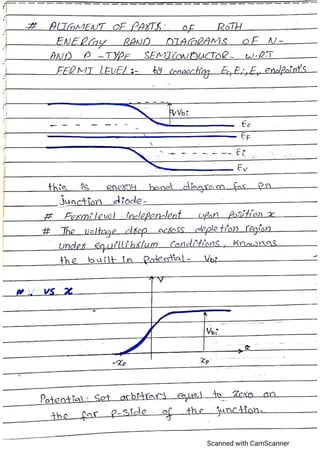 # ALIGNMENT OF PARTS: OF BOTH
ENERGY BAND DIAGRAMS OF N-
AND P -TYPE SEMICONDUCTOR- W.R.T
FERMI LEVEL:- by connecting Ec, Ei, Ev endpoints
qVbi
Ec
EF
Ei
Ev
this is energy band diagram for pn
junction diode-
# Fermilevel independent upon Position x
# The voltage drop across depletion region
under equillibrium conditions, Knownas
the built in Potential- Vbi
# V VS x
V
Vbi
x
-xp
xp
Potential- Set arbitrary equal to Zero on
the far p-side of the junction.
Scanned with CamScanner